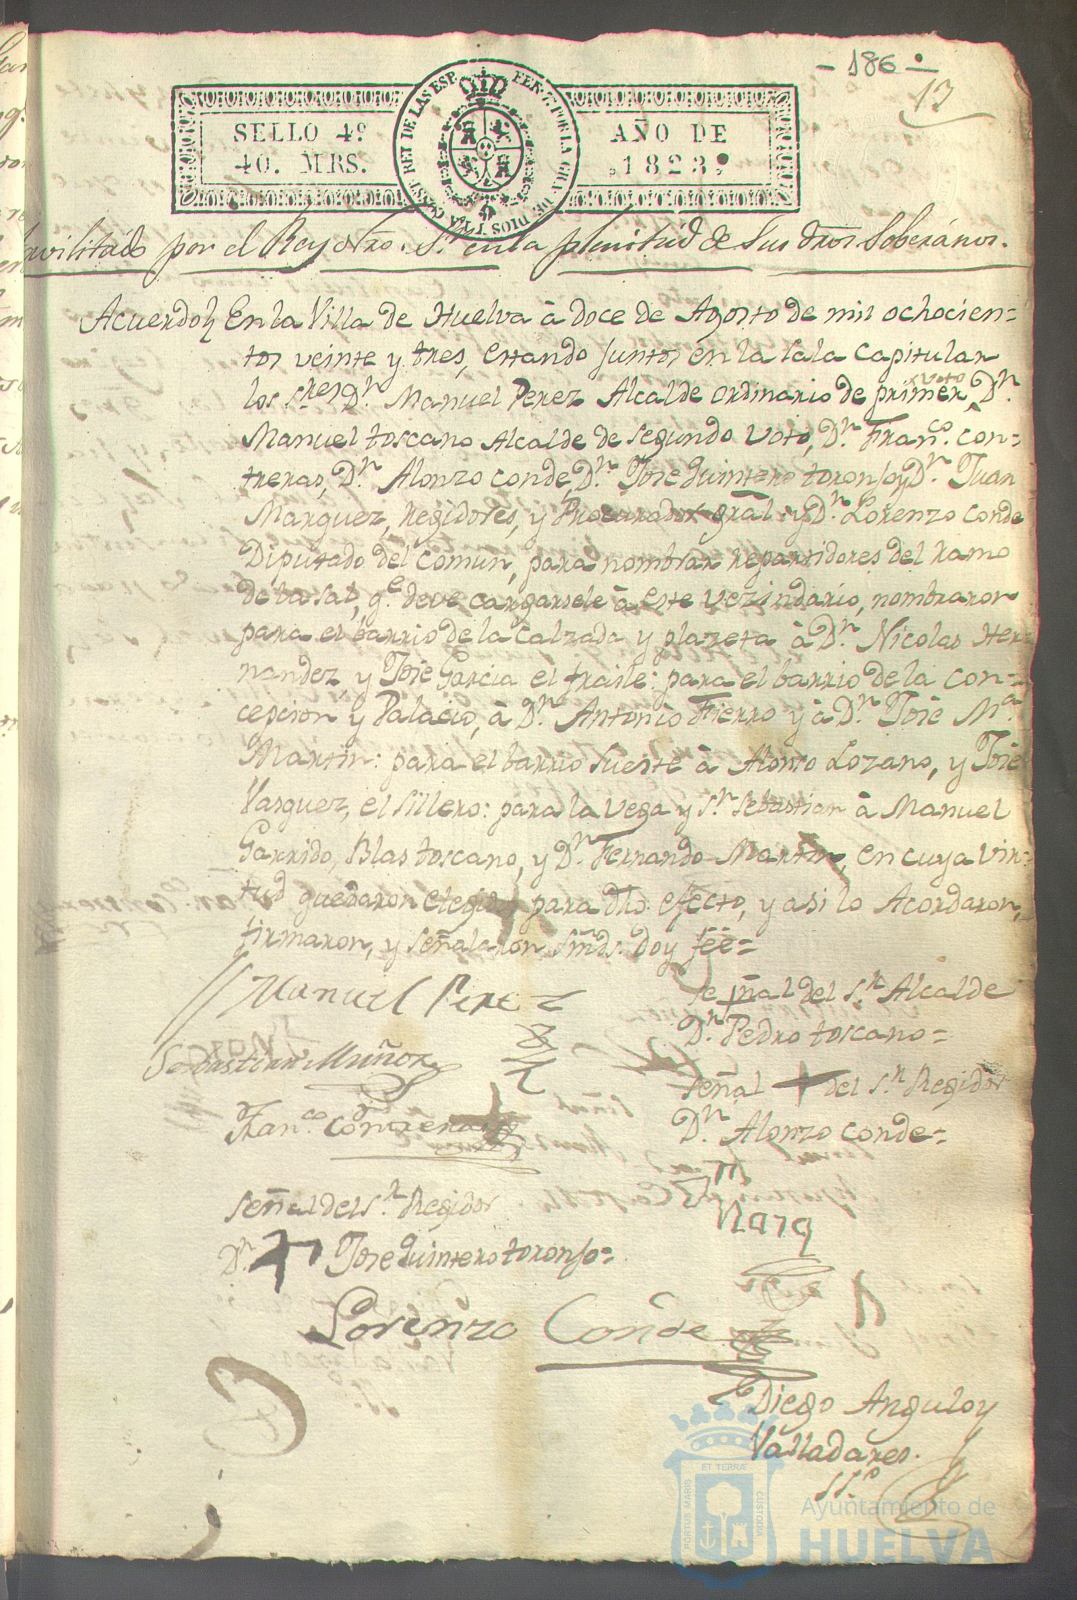 - 186 -
13
SELLO 4º
40. MRS.
FER. 7. POR LA GRA. DE DIOS REY DE LAS ESP.
AÑO DE
1823.
havilitado por el Rey Ntro. Sr. en la plenitud de Sus dros Soberanos.
Acuerdo En la Villa de Huelva à doce de Agosto de mil ochocien-
tos veinte y tres, estando juntos en la Sala Capitular
los Sres Dn Manuel Perez Alcalde ordinario de primer voto, Dn.
Manuel toscano Alcalde de segundo voto, Dn. Franco. Con-
treras, Dn. Alonzo conde, Dn. Jose Quintero toronjo y Dn. Juan
Marquez, Regidores, y Procurador gral. y Dn. Lorenzo Conde
Diputado del Comun, para nombrar repartidores del ramo
de la sal, qe. deve cargarsele à este vezindario, nombraron
para el barrio de la Calzada y plazeta à Dn. Nicolas Her-
nandez, y Jose Garcia el fraile: para el barrio de la Con-
cepcion y Palacio, à Dn. Antonio Fierro y à Dn. Jose Ma.
Martin: para el barrio Fuerte à Alonso Lozano, y Jose
Vasquez, el Sillero: para la Vega y Sn. Sebastian à Manuel
Garrido, Blas toscano, y Dn. Fernando Martin, en cuya vir-
tud quedaron elegidos para dho efecto, y asi lo Acordaron,
firmaron, y Señalaron Smds. doy fèe=
Manuel Perez
Señal del Sr. Alcalde
Dn. Pedro toscano=
Sebastian Muñoz
Señal + del Sr. Regidor
Dn. Alonzo conde=
Franco. Contreras
Señal del Sr. Regidor
Dn. Jose Quintero toronjo=
Lorenzo Conde
Diego Angulo y
Valladares.
SSº
PORTUS MARIS
ET TERRÆ
CUSTODIA
Ayuntamiento de
HUELVA